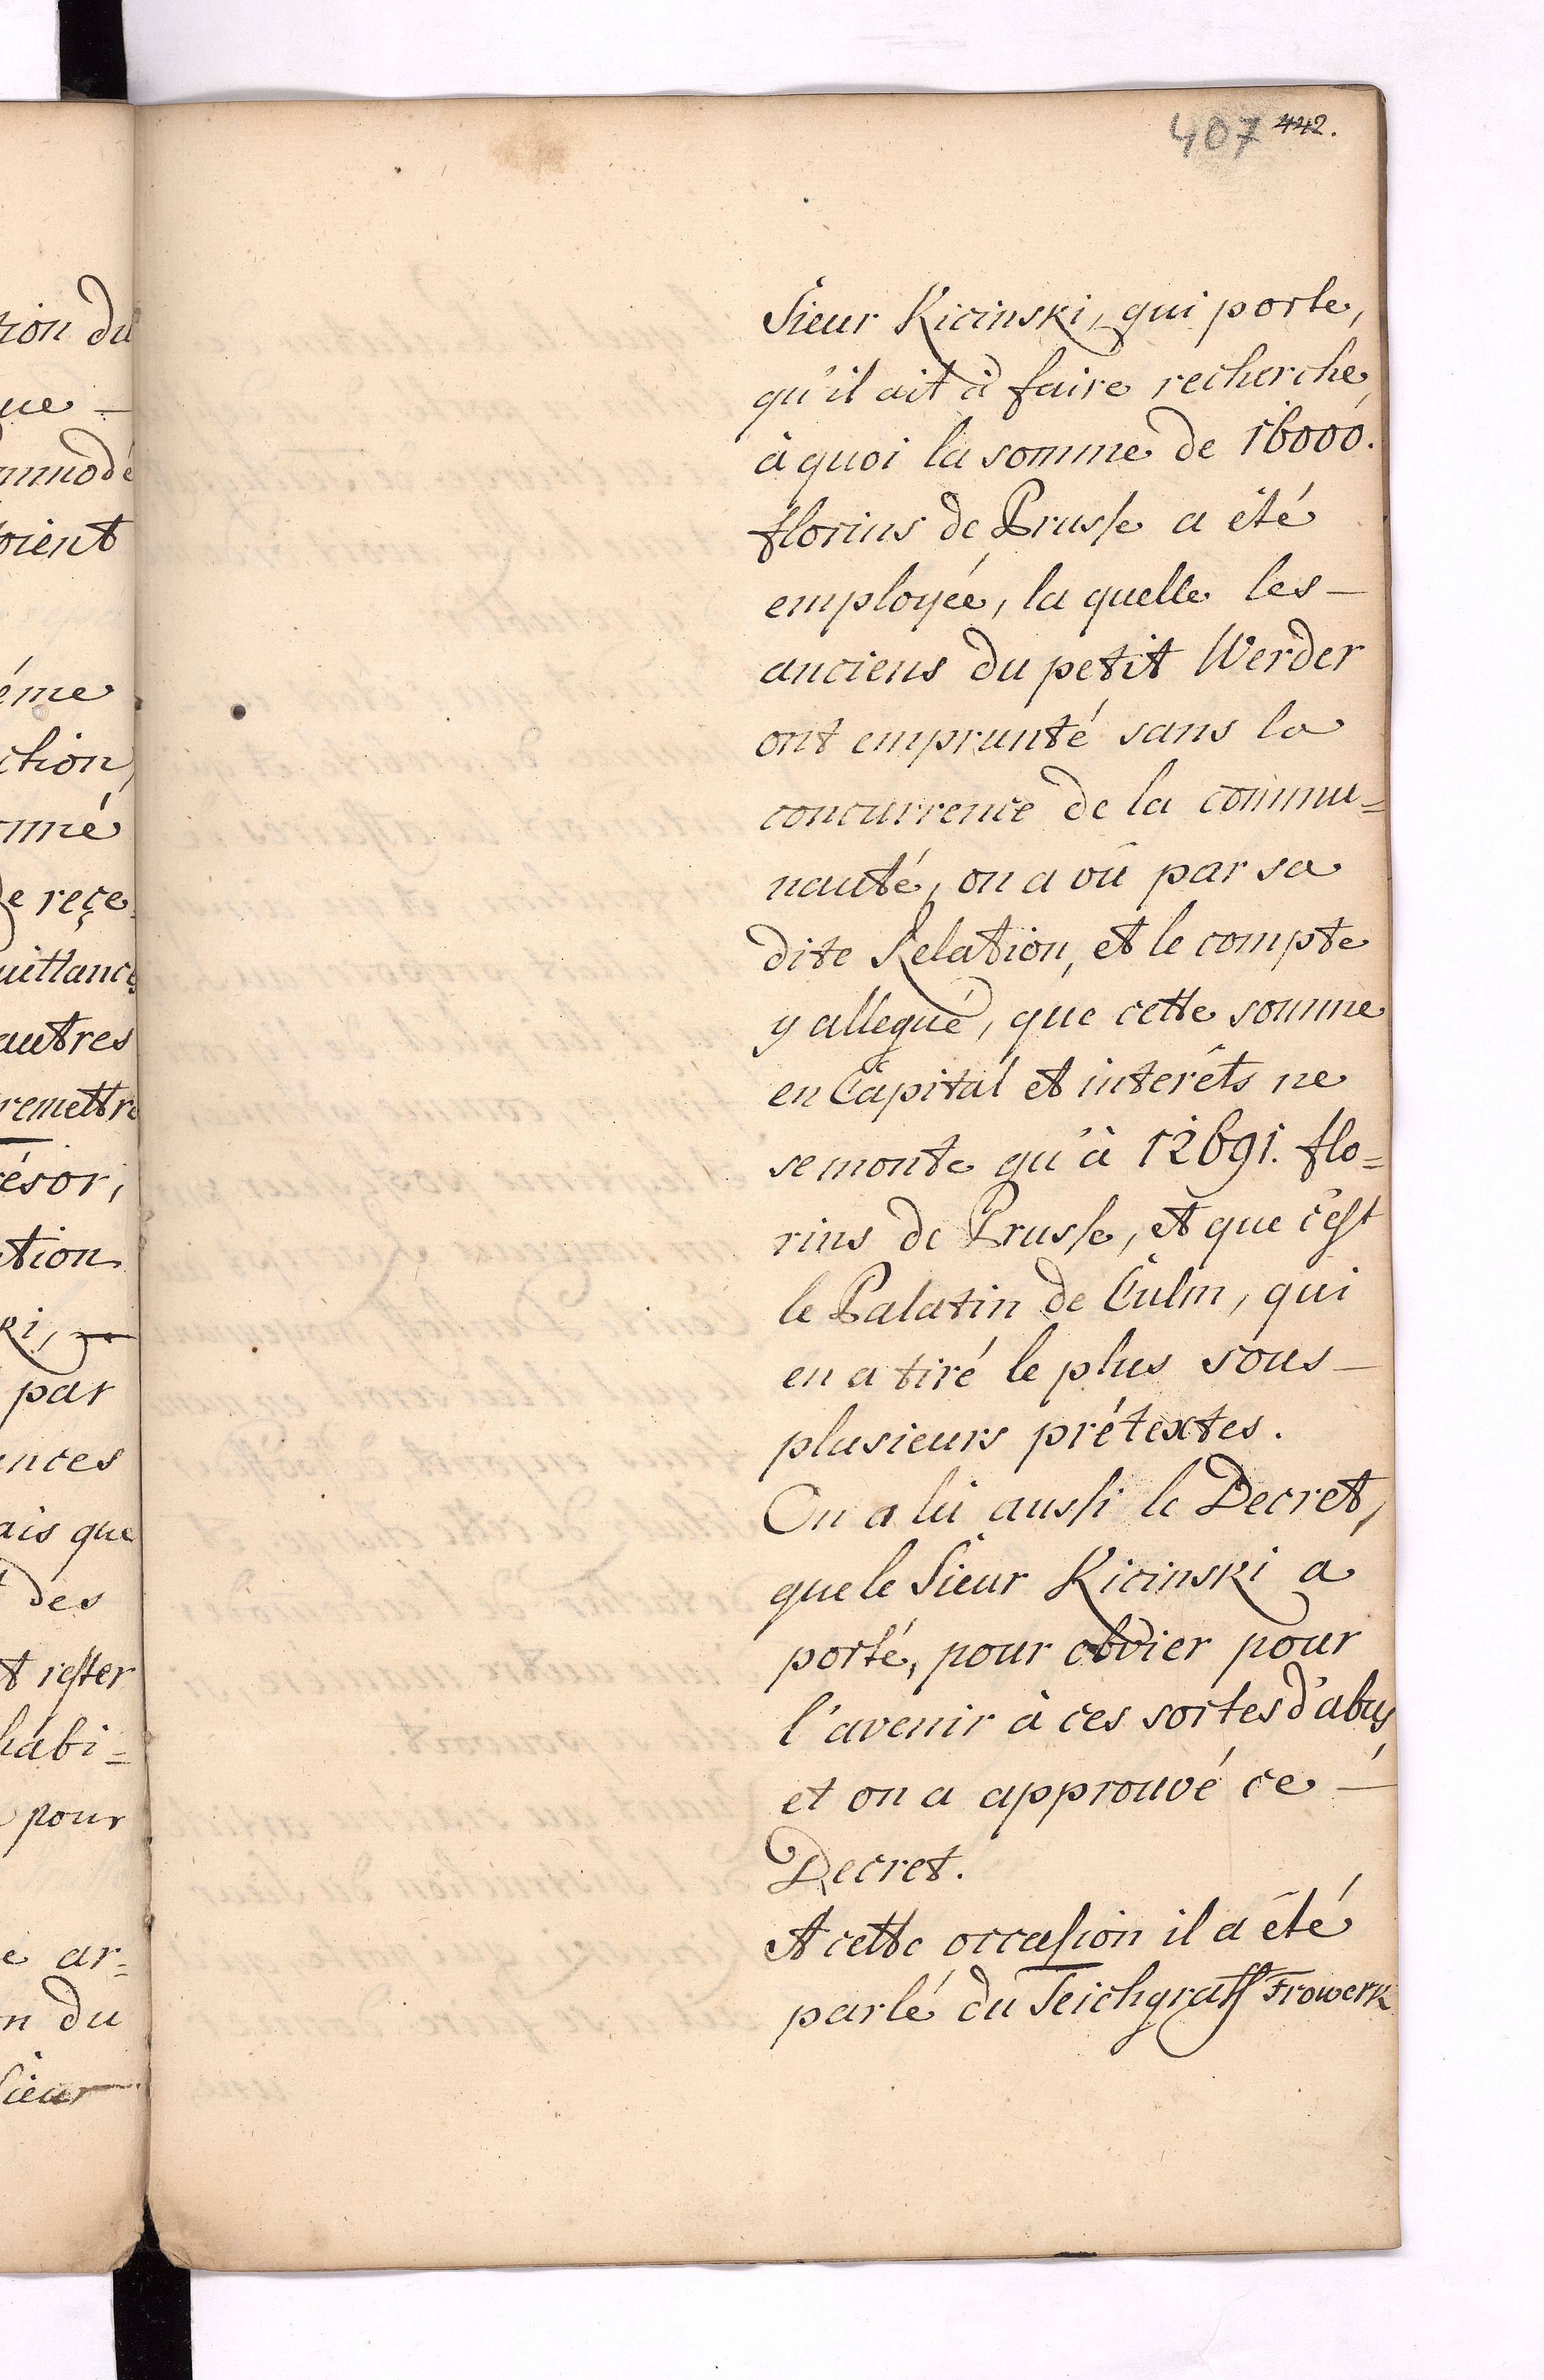 407 442.
Sieur Kicinski, qui porte,
qu'il ait à faire recherche,
à quoi la somme de 16000.
florins de Prusse a été
employée, la quelle les —
anciens du petit Werder
ont emprunté sans la
concurrence de la commu=
nauté, on a vû par sa
dite Relation, et le compte
y allegué, que cette somme
en Capital et interêts ne
se monte qu'à 12691. flo=
rins de Prusse, et que c'est
le Palatin de Culm, qui
en a tiré le plus sous —
plusieurs prétextes.
On a lû aussi le Decret,
que le Sieur Kicinski a
porté, pour obvier pour
l'avenir à ces sortes d'abus,
et on a approuvé ce —
Decret.
A cette occasion il a été
parlé du Teichgraff Frowerk
tion du
ue —
mmodé
oient
éme
ction,
mmé
de reçe
uittance
autres
remettre
résor,
ction
ki, —
par
ances
ais que
des
t rester
habi=
pour
e ar=
n du
Sieur